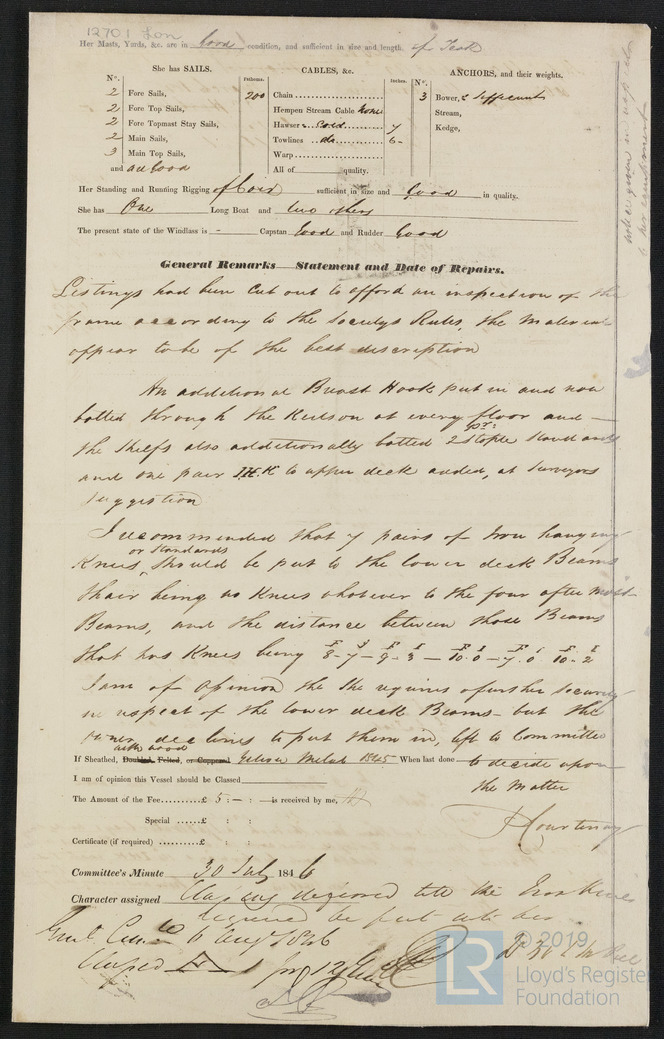 12701 Lon
Her Masts, Yards, &c. are in Good condition, and sufficient in size and length. of Teak
She has SAILS.
CABLES, &c.
ANCHORS, and their weights.
N°.
Fathoms.
Inches.
N°.
2 Fore Sails,
200
Chain
3 Bower, & sufficient
2 Fore Top Sails,
Hempen Stream Cable none
Stream,
2 Fore Topmast Stay Sails,
Hawser 7
Kedge,
2 Main Sails,
Towlines do 6-
3 Main Top Sails,
Warp
and all Good
All of quality.
Her Standing and Running Rigging of Coir sufficient in size and Good in quality.
She has One Long Boat and two others
The present state of the Windlass is - Capstan Good and Rudder Good
General Remarks Statement and Date of Repairs.
Listings had been cut out to afford an inspection of the
frame according to the Societys Rules, the materials
appear to be of the best description
An additional Breast Hook put in and now
bolted through the Keelson at every floor and
the Shelfs also additionally bolted 2 pr: Staple Standards
and one pair I.H.K to upper deck added, at Surveyors
suggestion
I recommended that 7 pairs of Iron hanging
Knees, or Standards should be put to the lower deck Beams
thair being no Knees whatever to the four after most
Beams, and the distance between those Beams
that has Knees being 8-7-9-3-10.0-7.0 10-2
I am of opinion the she requires further security
in respect of the lower deck Beams - but the
owner declines to put them in, left to Committee
to decide upon
the Matter
If Sheathed, Doubled, Felted, or Coppered with wood Yellow Metal 1845 When last done
I am of opinion this Vessel should be Classed
The Amount of the Fee £ 5 : - : - is received by me,
Special £ : :
Certificate (if required) £ : :
Courtenay
Committee's Minute 30 July 1846
Character assigned Classing deferred till the Iron Knees
required be put into her
6 Augt 1846
Classed
© 2019
LR
Lloyd's Register
Foundation